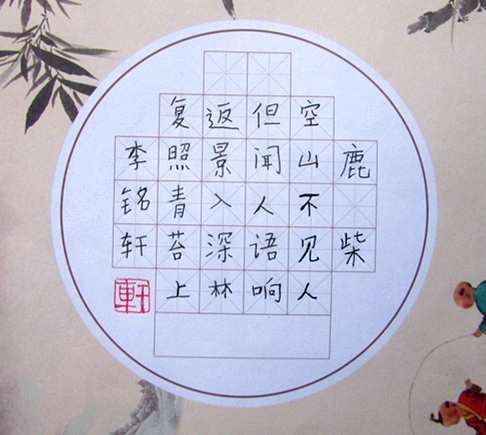 鹿柴
空山不见人
但闻人语响
返景入深林
复照青苔上
李铭轩
軒